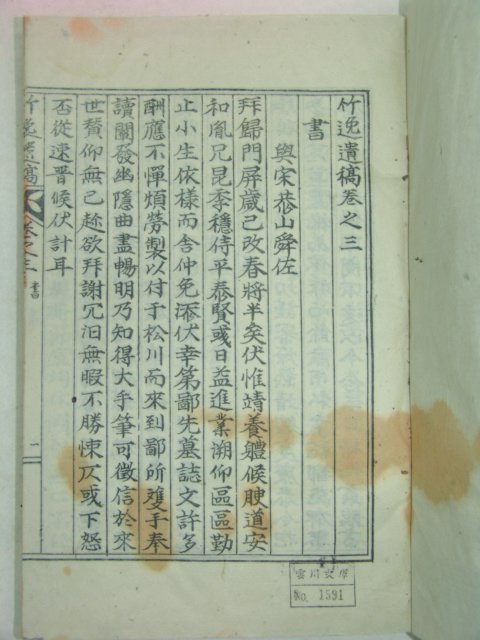 竹逸遺稿卷之三
書
與宋恭山舜佐
拜歸門屏歲已改春將半矣伏惟靖養軆候腴道安
和胤兄昆季穩侍平泰賢彧日益進業溯仰區區勤
止小生依樣而舍仲免添伏幸第鄙先墓誌文許多
酬應不憚煩勞製以付于松川而來到鄙所雙手奉
讀闡發幽隱曲盡暢明乃知得大手筆可徵信於來
世贊仰無已趂欲拜謝冗汩無暇不勝悚仄或下恕
否從速晋候伏計耳
竹逸遺稿
卷之三
書
一
雲川文庫
No. 1591